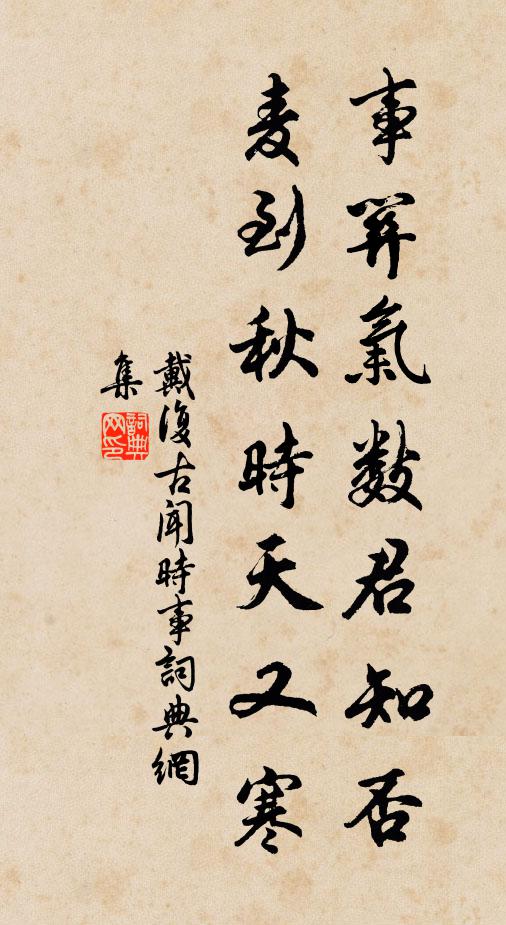 事關氣數君知否
麦到秋時天又寒
戴復古聞時事詞典網
集
詞典
网印